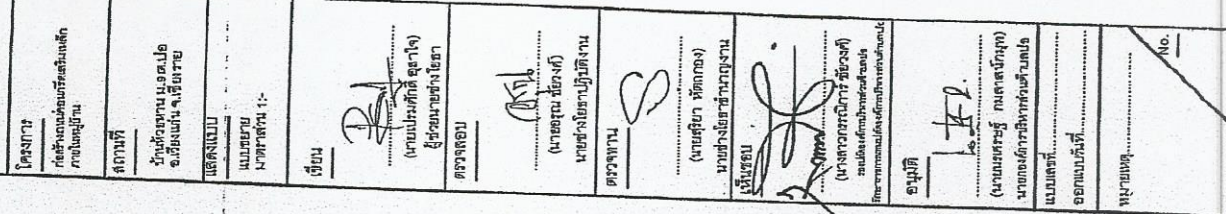 โครงการ
ก่อสร้างถนนคอนกรีตเสริมเหล็ก
ภายในหมู่บ้าน
สถานที่
บ้านห้วยหาน ม.9 ต.ปอ
อ.เวียงแก่น จ.เชียงราย
แสดงแบบ
แบบขยาย
มาตราส่วน 1:-
เขียน
(นายเปรมศักดิ์ อุสาใจ)
ผู้ช่วยนายช่างโยธา
ตรวจสอบ
(นายอรุณ ชัยวงค์)
นายช่างโยธาปฏิบัติงาน
ตรวจทาน
(นายสุริยา หัตถกอง)
นายช่างโยธาชำนาญงาน
เห็นชอบ
(นางสาวกรณิการ์ ชัยวงค์)
รองปลัดองค์การบริหารส่วนตำบลปอ
อนุมัติ
นายกองค์การบริหารส่วนตำบลปอ
แบบเลขที่
ออกแบบวันที่
หมายเหตุ
No.